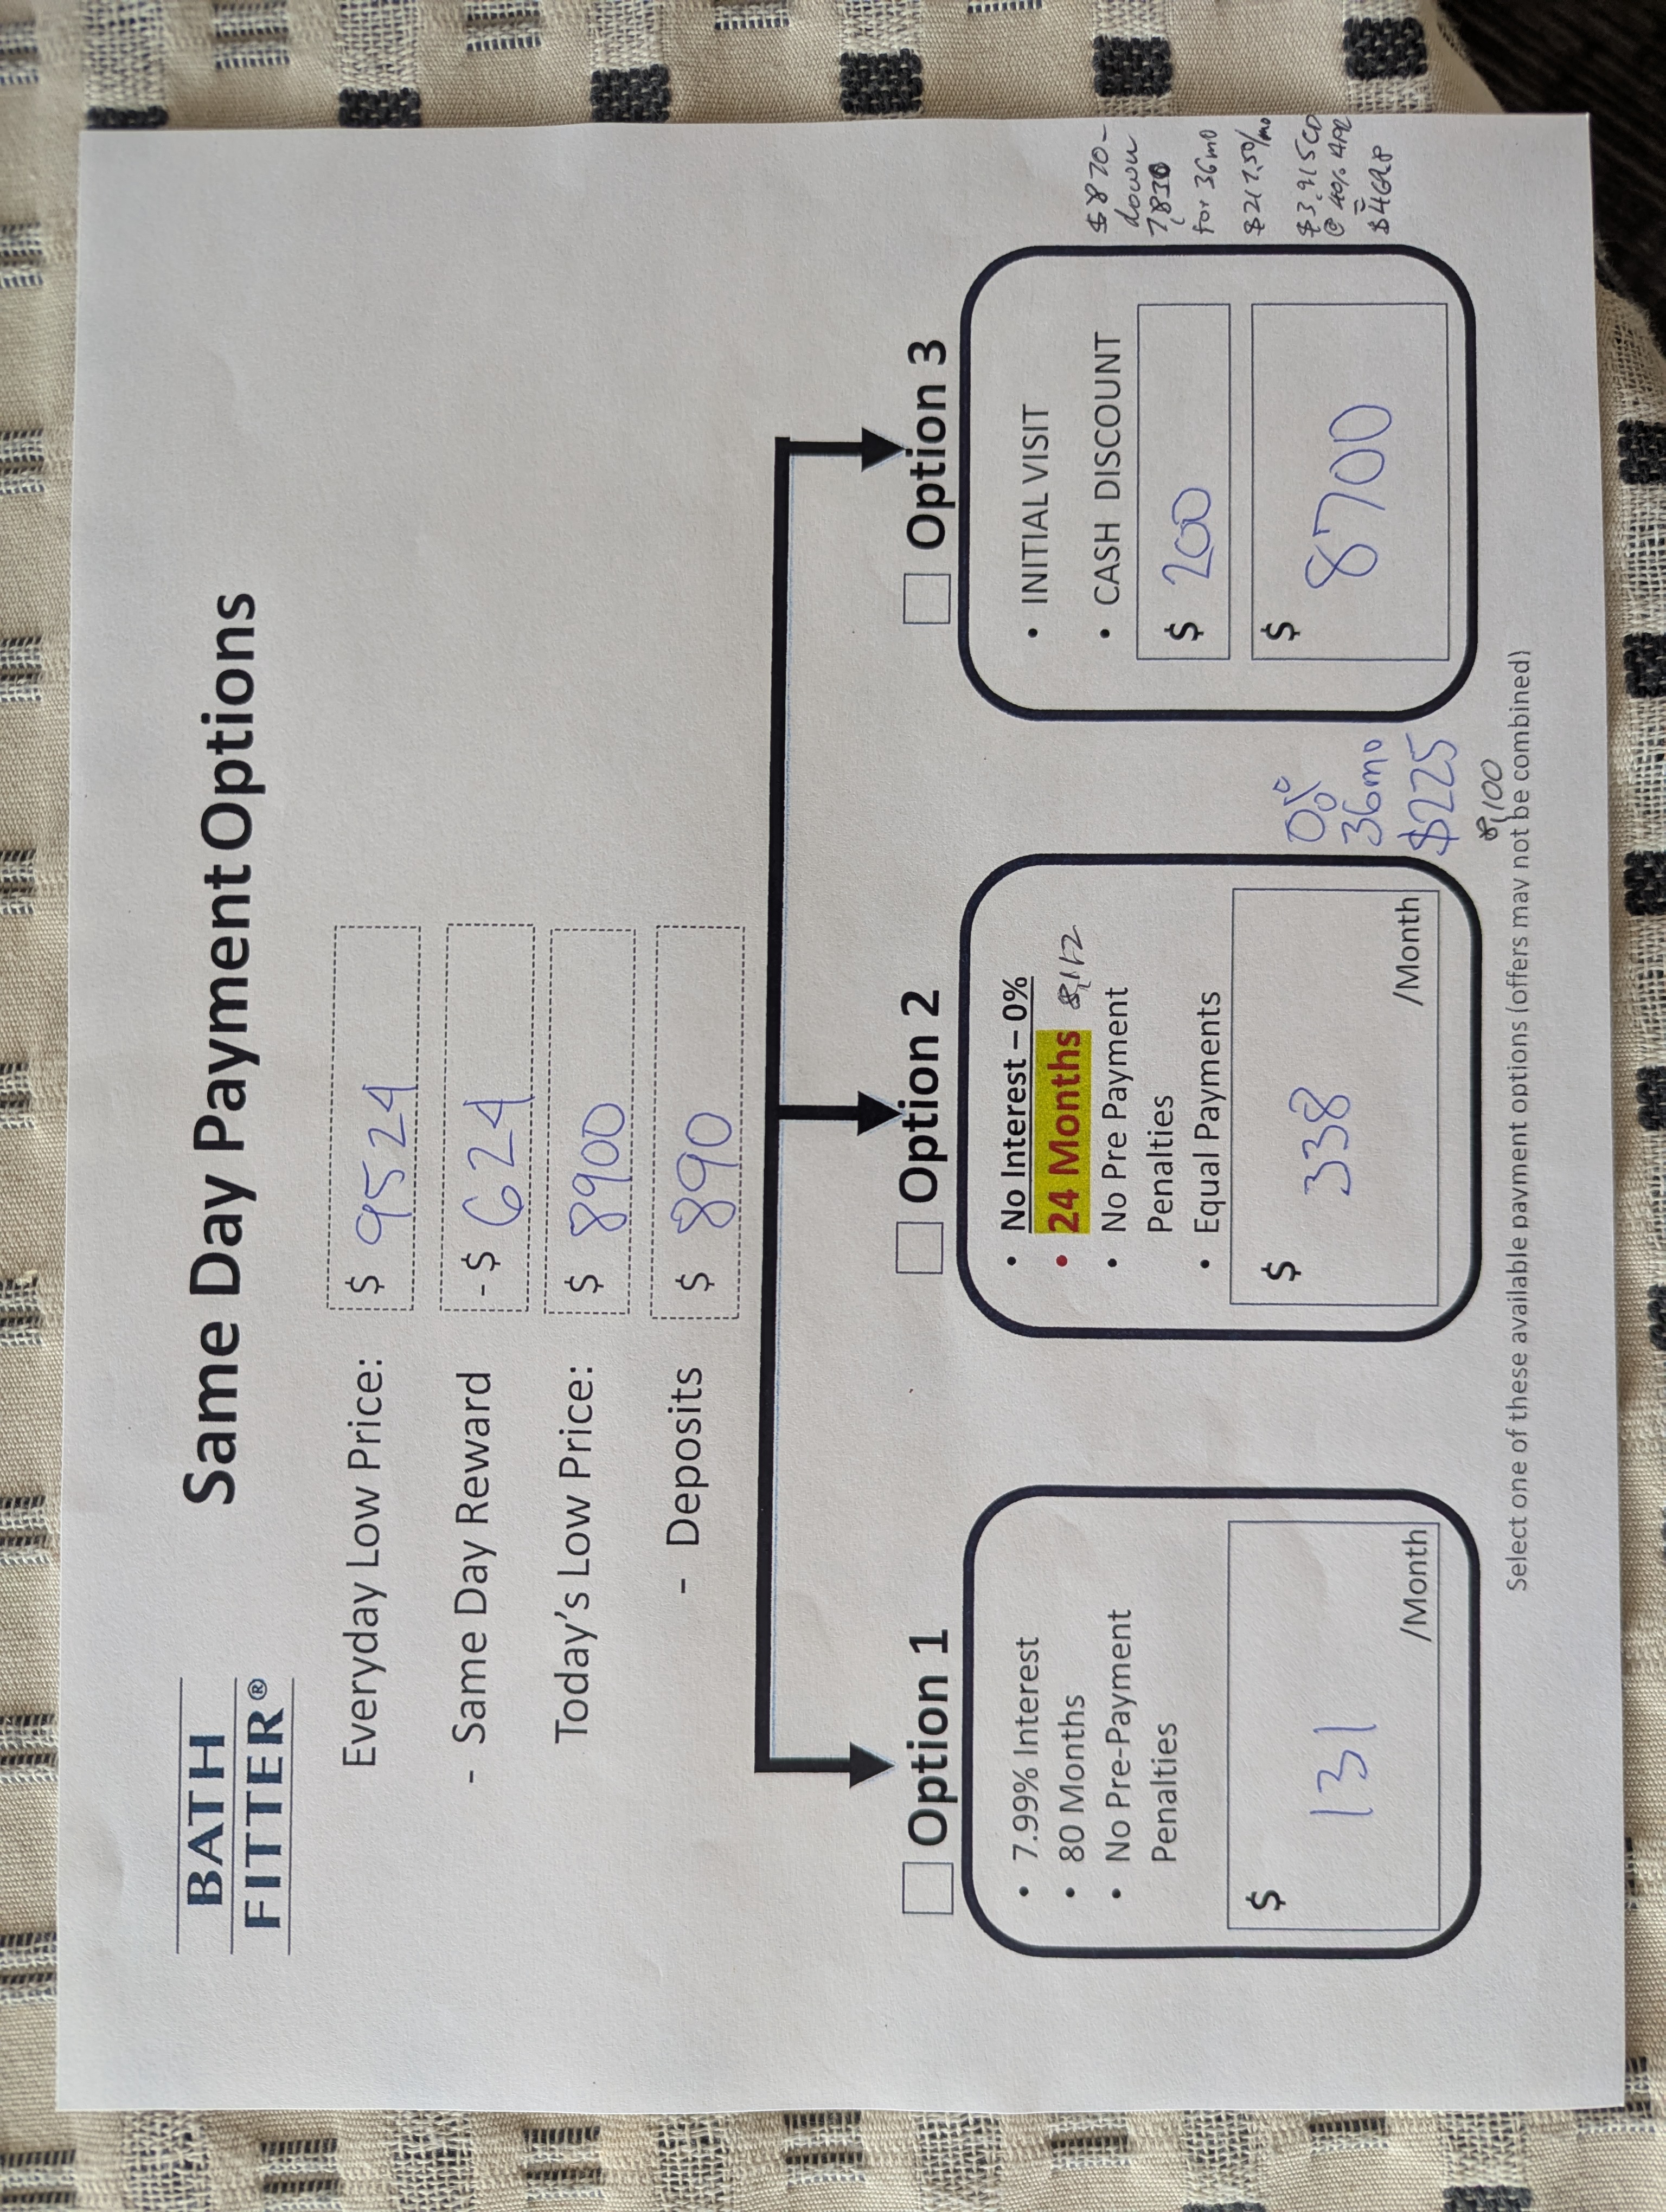 BATH
FITTER®
Same Day Payment Options
Everyday Low Price: $ 9524
- Same Day Reward - $ 624
Today's Low Price: $ 8900
- Deposits $ 890
Option 1
• 7.99% Interest
• 80 Months
• No Pre-Payment
Penalties
$ 131 /Month
Option 2
• No Interest – 0%
• 24 Months 8,112
• No Pre Payment
Penalties
• Equal Payments
$ 338 /Month
0%
36mo
$225
8,100
Option 3
• INITIAL VISIT
• CASH DISCOUNT
$ 200
$ 8700
$870-
down
7,830
for 36mo
$217.50/mo
$3,915 CD
@ 4%
=
Select one of these available payment options (offers may not be combined)